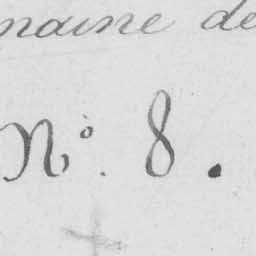 maine de
N° 8.